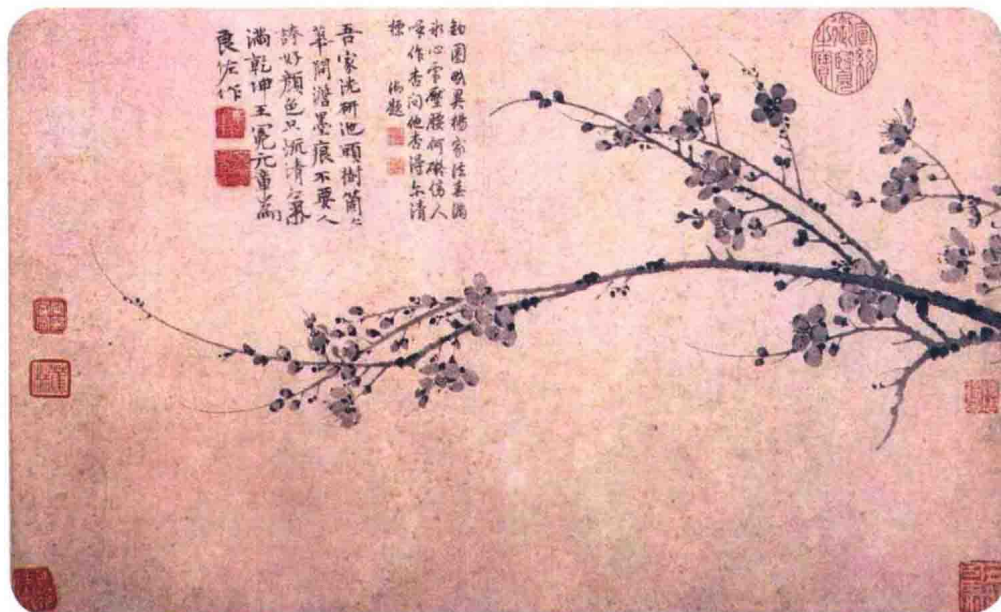 宣統
御覽
之寶
鈎圈畧異楊家法春滿
冰心雪壓腰何礙傍人
喚作杏問他杏得尔清
標 御題
吾家洗研池頭樹箇〻
華開澹墨痕不要人
誇好顏色只流清氣
滿乾坤王冕元章為
良佐作